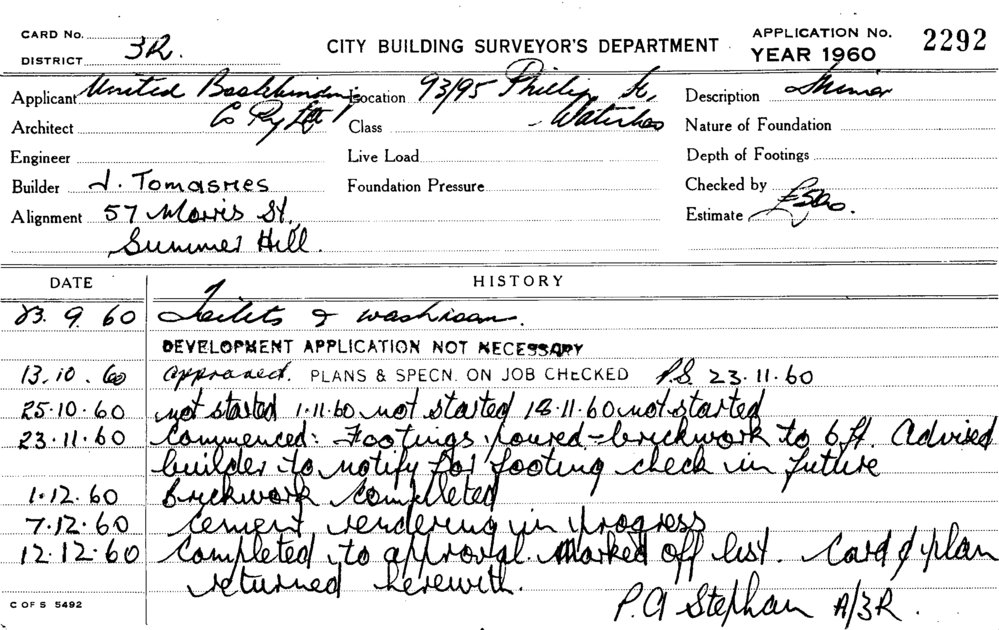 CARD No.
DISTRICT 3R.
CITY BUILDING SURVEYOR'S DEPARTMENT
APPLICATION No. 2292
YEAR 1960
Applicant United Bookbinding Co Pty Ltd
Location 93/95 Phillip St, Waterloo
Description Minor
Architect
Class
Nature of Foundation
Engineer
Live Load
Depth of Footings
Builder J. Tomasries
Foundation Pressure
Checked by
Alignment 57 Morris St,
Summer Hill.
Estimate £500.
DATE HISTORY
23. 9. 60 Toilets & washroom.
DEVELOPMENT APPLICATION NOT NECESSARY
13. 10. 60 approved. PLANS & SPECN. ON JOB CHECKED P.S. 23.11.60
25.10.60 not started 1.11.60 not started 18.11.60 not started
23.11.60 Commenced: Footings poured - brickwork to 6 ft. Advised
builder to notify for footing check in future
1.12.60 Brickwork completed
7.12.60 Cement rendering in progress
12.12.60 Completed to approval. Marked off list. Card & plan
returned herewith.
P.A Stephan A/3R.
C OF S 5492